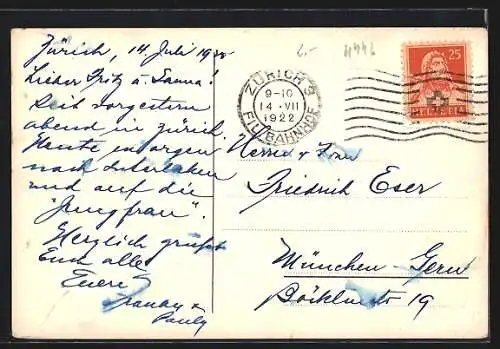 Zürich, 14 Juli 1922
Lieber Fritz u. Emma!
Seit vorgestern
abend in Zürich.
Heute morgen
nach Interlaken
und auf die
"Jungfrau".
Herzlich grüsst
Euch alle
Eueri
Pauly
ZÜRICH 3
9-10
14.VII
1922
FIL. BAHNHOF
25
HELVETIA
Herrn u Frau
Friedrich Eser
München-Gern
Böcklinstr. 19